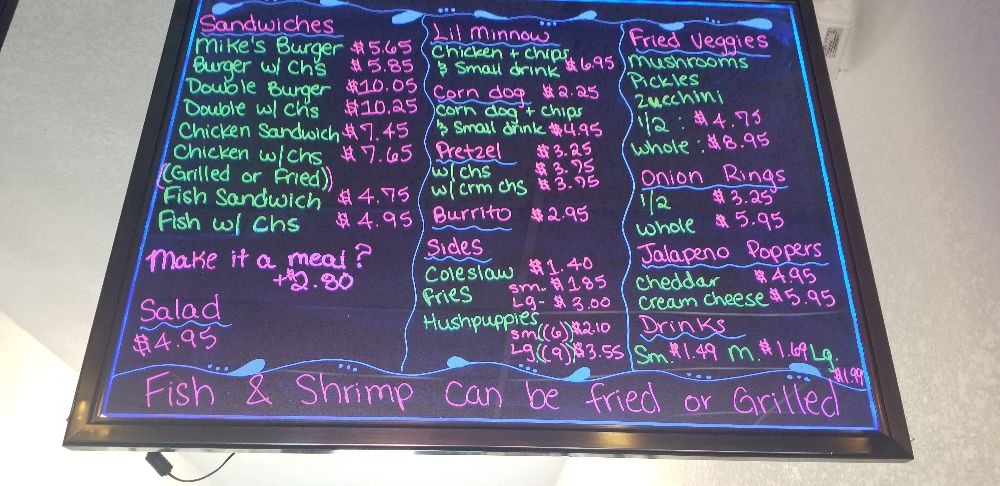 Sandwiches
Mike's Burger $5.65
Burger w/ Chs $5.85
Double Burger $10.05
Double w/ Chs $10.25
Chicken Sandwich $7.45
Chicken w/chs $7.65
(Grilled or Fried)
Fish Sandwich $4.75
Fish w/ Chs $4.95
Make it a meal?
+$2.80
Salad
$4.95
Lil Minnow
Chicken + chips
& Small drink $6.95
Corn dog $2.25
Corn dog + chips
& Small drink $4.95
Pretzel $3.25
w/chs $3.75
w/ crm chs $3.95
Burrito $2.95
Sides
Coleslaw $1.40
Fries sm- $1.85
Lg- $3.00
Hushpuppies
sm (6) $2.10
Lg (9) $3.55
Fried Veggies
Mushrooms
Pickles
Zucchini
1/2 : $4.75
whole : $8.95
Onion Rings
1/2 $3.25
whole $5.95
Jalapeno Poppers
Cheddar $4.95
Cream cheese $5.95
Drinks
Sm. $1.49 M. $1.69 Lg.
$1.99
Fish & Shrimp Can be fried or Grilled